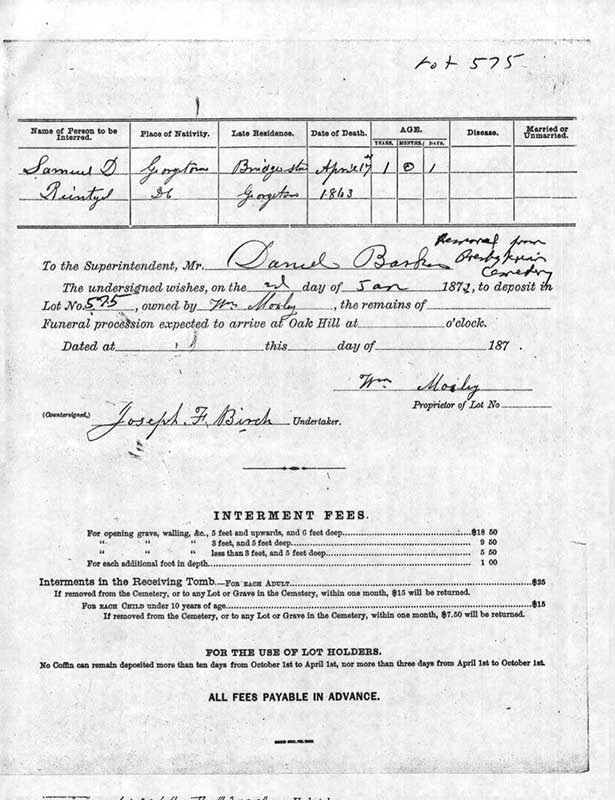 Lot 575
Name of Person to be Interred. Place of Nativity. Late Residence. Date of Death. AGE. YEARS. MONTHS. DAYS. Disease. Married or Unmarried.
Samuel D Georgetown Bridge st April 17th 1 0 1
Reintzel DC Georgetown 1863
Removal from
Presbyterian
Cemetery
To the Superintendent, Mr. Daniel Barker
The undersigned wishes, on the 2d day of Jan 1872, to deposit in
Lot No. 575, owned by Wm Mosly, the remains of
Funeral procession expected to arrive at Oak Hill at o'clock.
Dated at this day of 187 .
Wm Mosly
Proprietor of Lot No
(Countersigned,) Joseph. F. Birch Undertaker.
INTERMENT FEES.
For opening grave, walling, &c., 5 feet and upwards, and 6 feet deep $18 50
" " " 3 feet, and 5 feet deep 9 50
" " " less than 3 feet, and 5 feet deep 5 50
For each additional foot in depth 1 00
Interments in the Receiving Tomb.—FOR EACH ADULT $25
If removed from the Cemetery, or to any Lot or Grave in the Cemetery, within one month, $15 will be returned.
FOR EACH CHILD under 10 years of age $15
If removed from the Cemetery, or to any Lot or Grave in the Cemetery, within one month, $7.50 will be returned.
FOR THE USE OF LOT HOLDERS.
No Coffin can remain deposited more than ten days from October 1st to April 1st, nor more than three days from April 1st to October 1st.
ALL FEES PAYABLE IN ADVANCE.